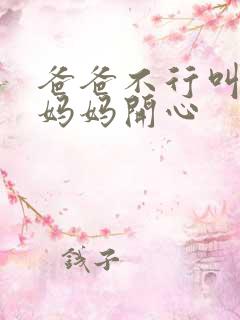 爸爸不行叫
妈妈開心
錢子